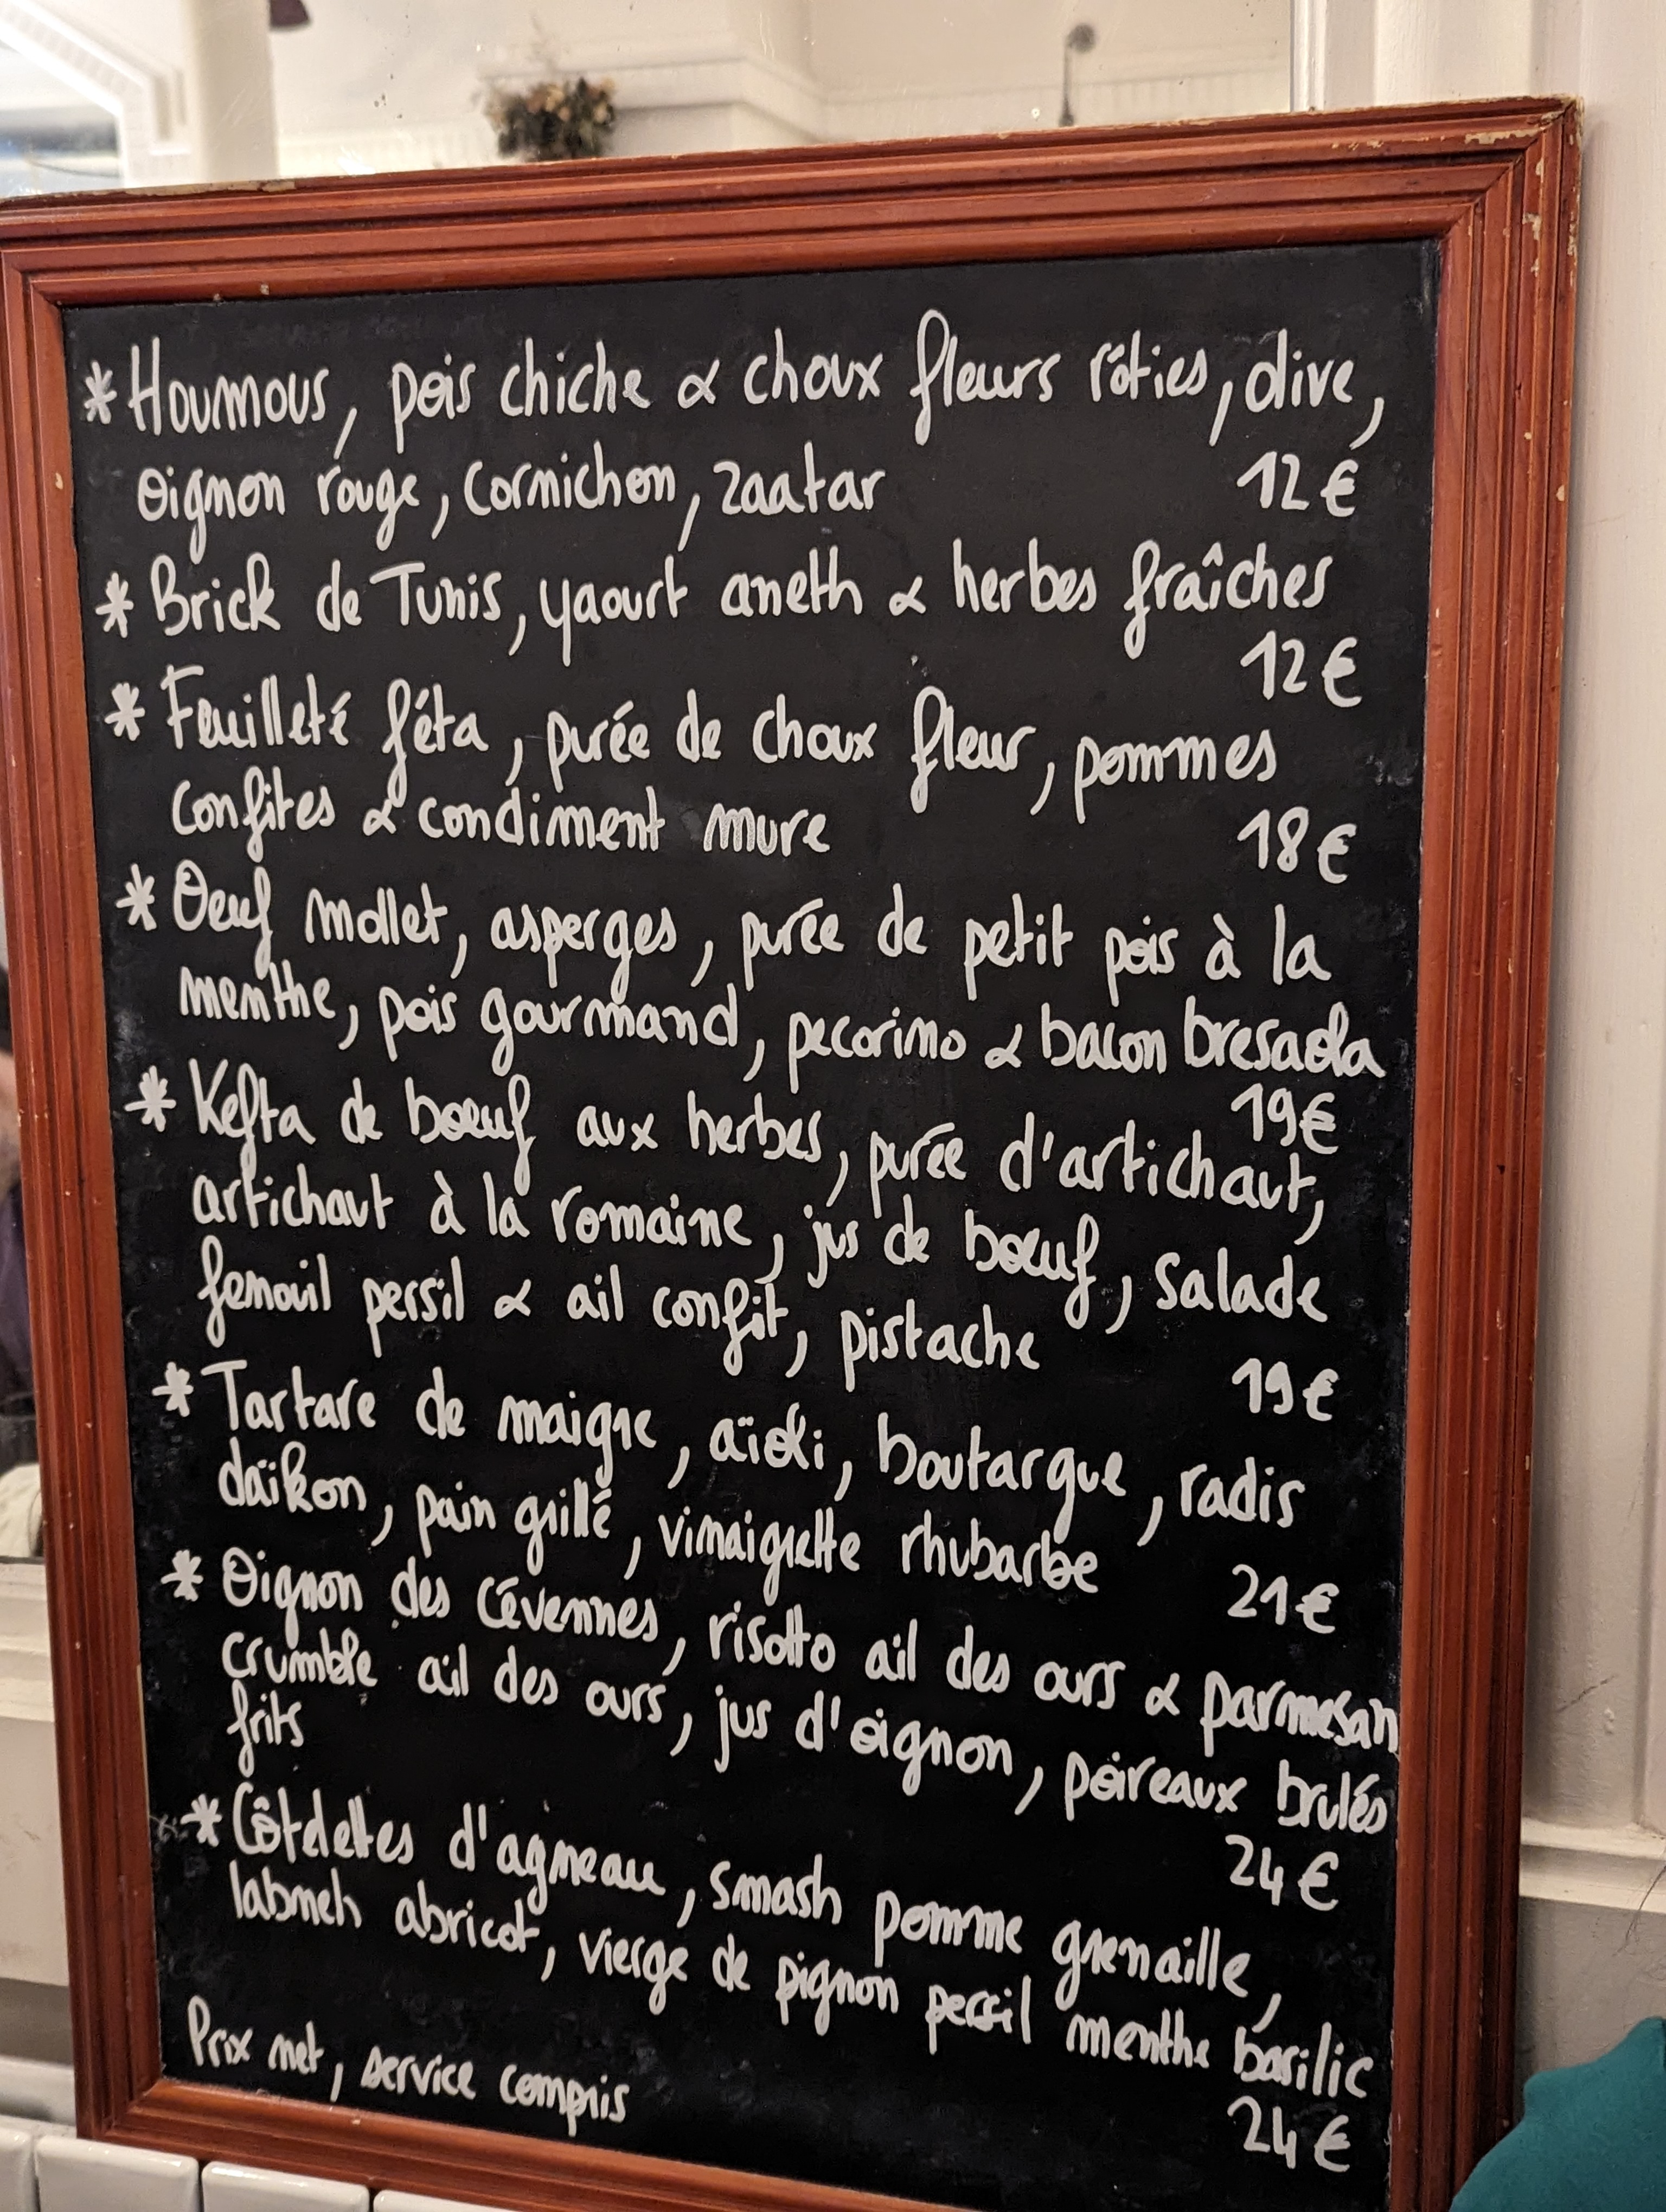 * Houmous, pois chiche & choux fleurs rôties, olive,
oignon rouge, cornichon, zaatar 12€
* Brick de Tunis, yaourt aneth & herbes fraîches
12€
* Feuilleté féta, purée de choux fleur, pommes
confites & condiment mure 18€
* Oeuf mollet, asperges, purée de petit pois à la
menthe, pois gourmand, pecorino & bacon bresaola
19€
* Kefta de boeuf aux herbes, purée d'artichaut,
artichaut à la romaine, jus de boeuf, salade
fenouil persil & ail confit, pistache 19€
* Tartare de maigre, aïoli, boutargue, radis
daïkon, pain grillé, vinaigrette rhubarbe 21€
* Oignon des Cévennes, risotto ail des ours & parmesan
crumble ail des ours, jus d'oignon, poireaux brulés
frits 24€
* Côtelettes d'agneau, smash pomme grenaille,
labneh abricot, vierge de pignon persil menthe basilic
24€
Prix net, service compris